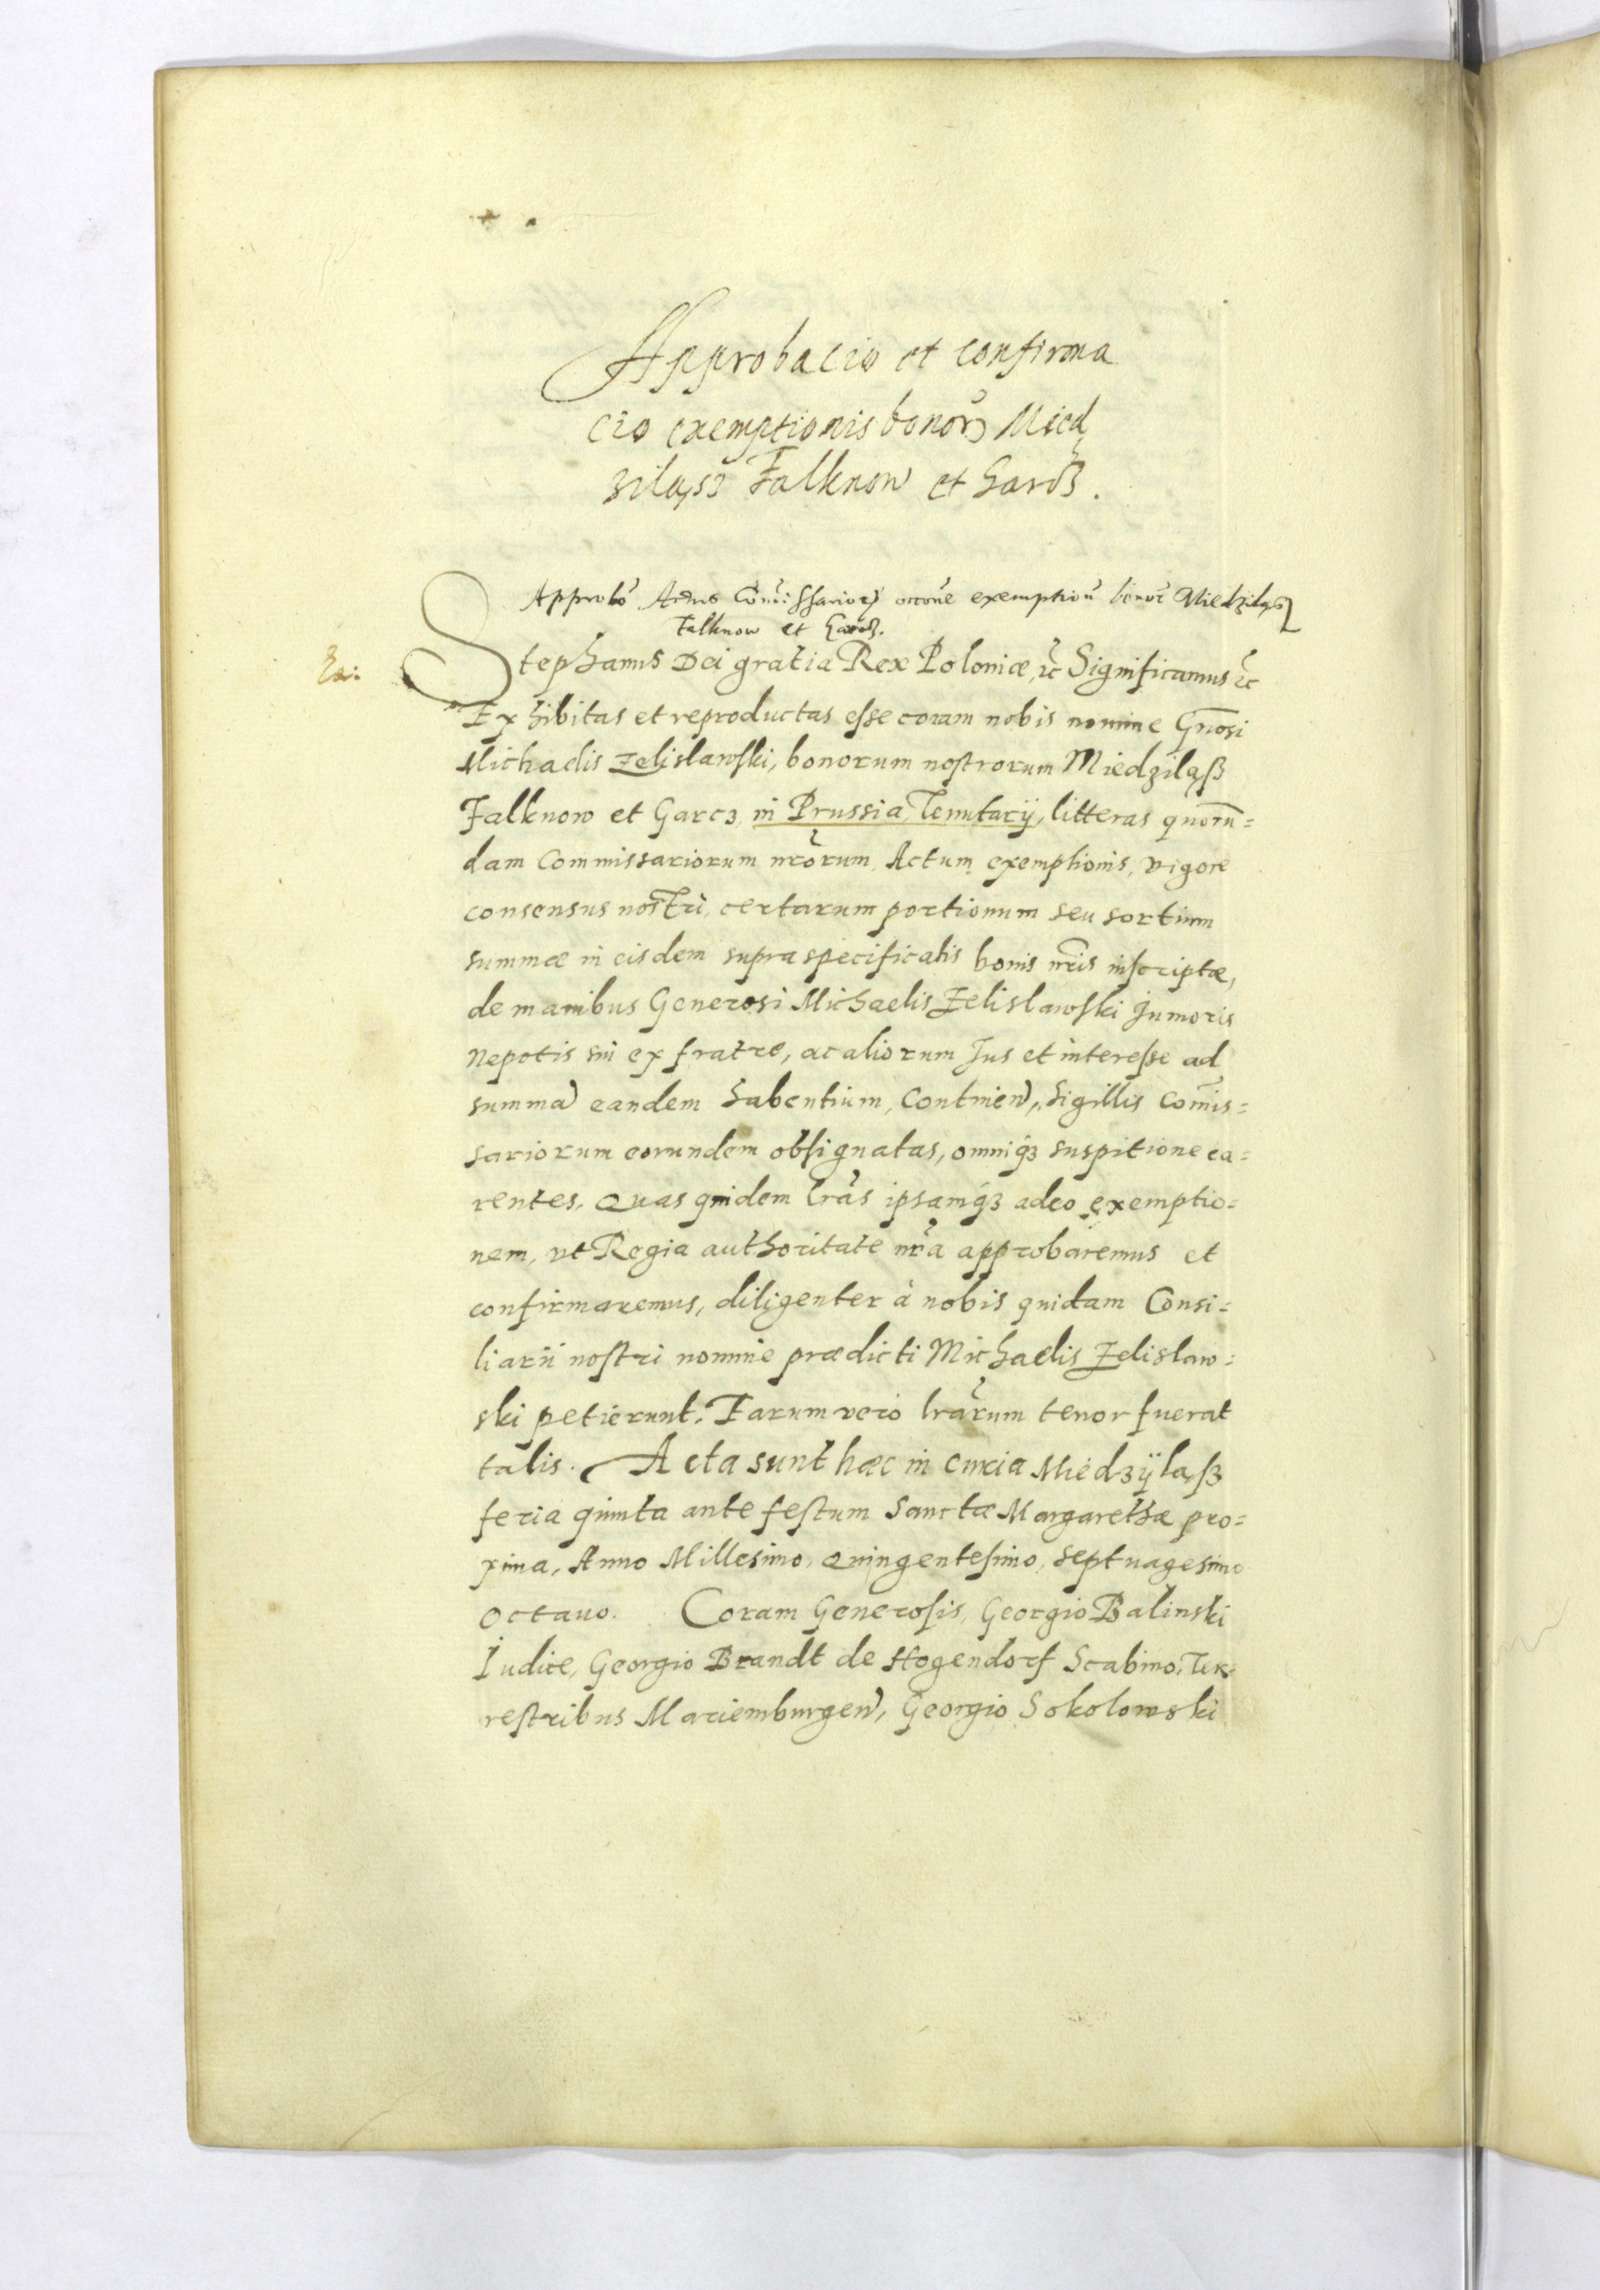 Approbacio et confirma
cio exemptionis bonorũ Mied
ziląsz Falknow et Garcz.
Approbõ Actus Com̃issariorũ exemptioñ bonor̃ Miedziląsz
Falknow et Garcz.
Stephanus Dei gratia Rex Poloniæ, ꝛc̃ Significamus ꝛc̃
Exhibitas et reproductas esse coram nobis nomine Gñosi
Michaelis Zelislawski, bonorum nostrorum Miedziląß
Falknow et Garcz, in Prussia, Tenutarij, litteras quorũ=
dam Commissariorum nrõrum, Actum exemptionis, vigore
consensus nostri, certarum portionum seu sortium
summæ in eisdem supraspecificatis bonis nrĩs inscriptæ,
de manibus Generosi Michaelis Zelislawski Junioris
Nepotis sui ex fratre, ac aliorum Jus et interesse ad
summã eandem habentium, Continen̄, Sigillis Com̃is=
sariorum eorundem obsignatas, omniq́ꝫ suspitione ca=
rentes. Quas quidem lrãs ipsamq́ꝫ adeo exemptio=
nem, vt Regia authoritate nrã approbaremus et
confirmaremus, diligenter à nobis quidam Consi=
liarii nostri nomine prædicti Michaelis Zelislaw=
ski petierunt. Earum vero lrãrum tenor fuerat
talis. Acta sunt hæc in Curia Miedzÿląß
feria quinta ante festum Sanctæ Margarethæ pro=
xima, Anno Millesimo, Quingentesimo, Septuagesimo
Octauo. Coram Generosis, Georgio Balinski
Iudice, Georgio Brandt de Hogendorf Scabino, Ter=
restribus Mariemburgen̄, Georgio Sokolowski